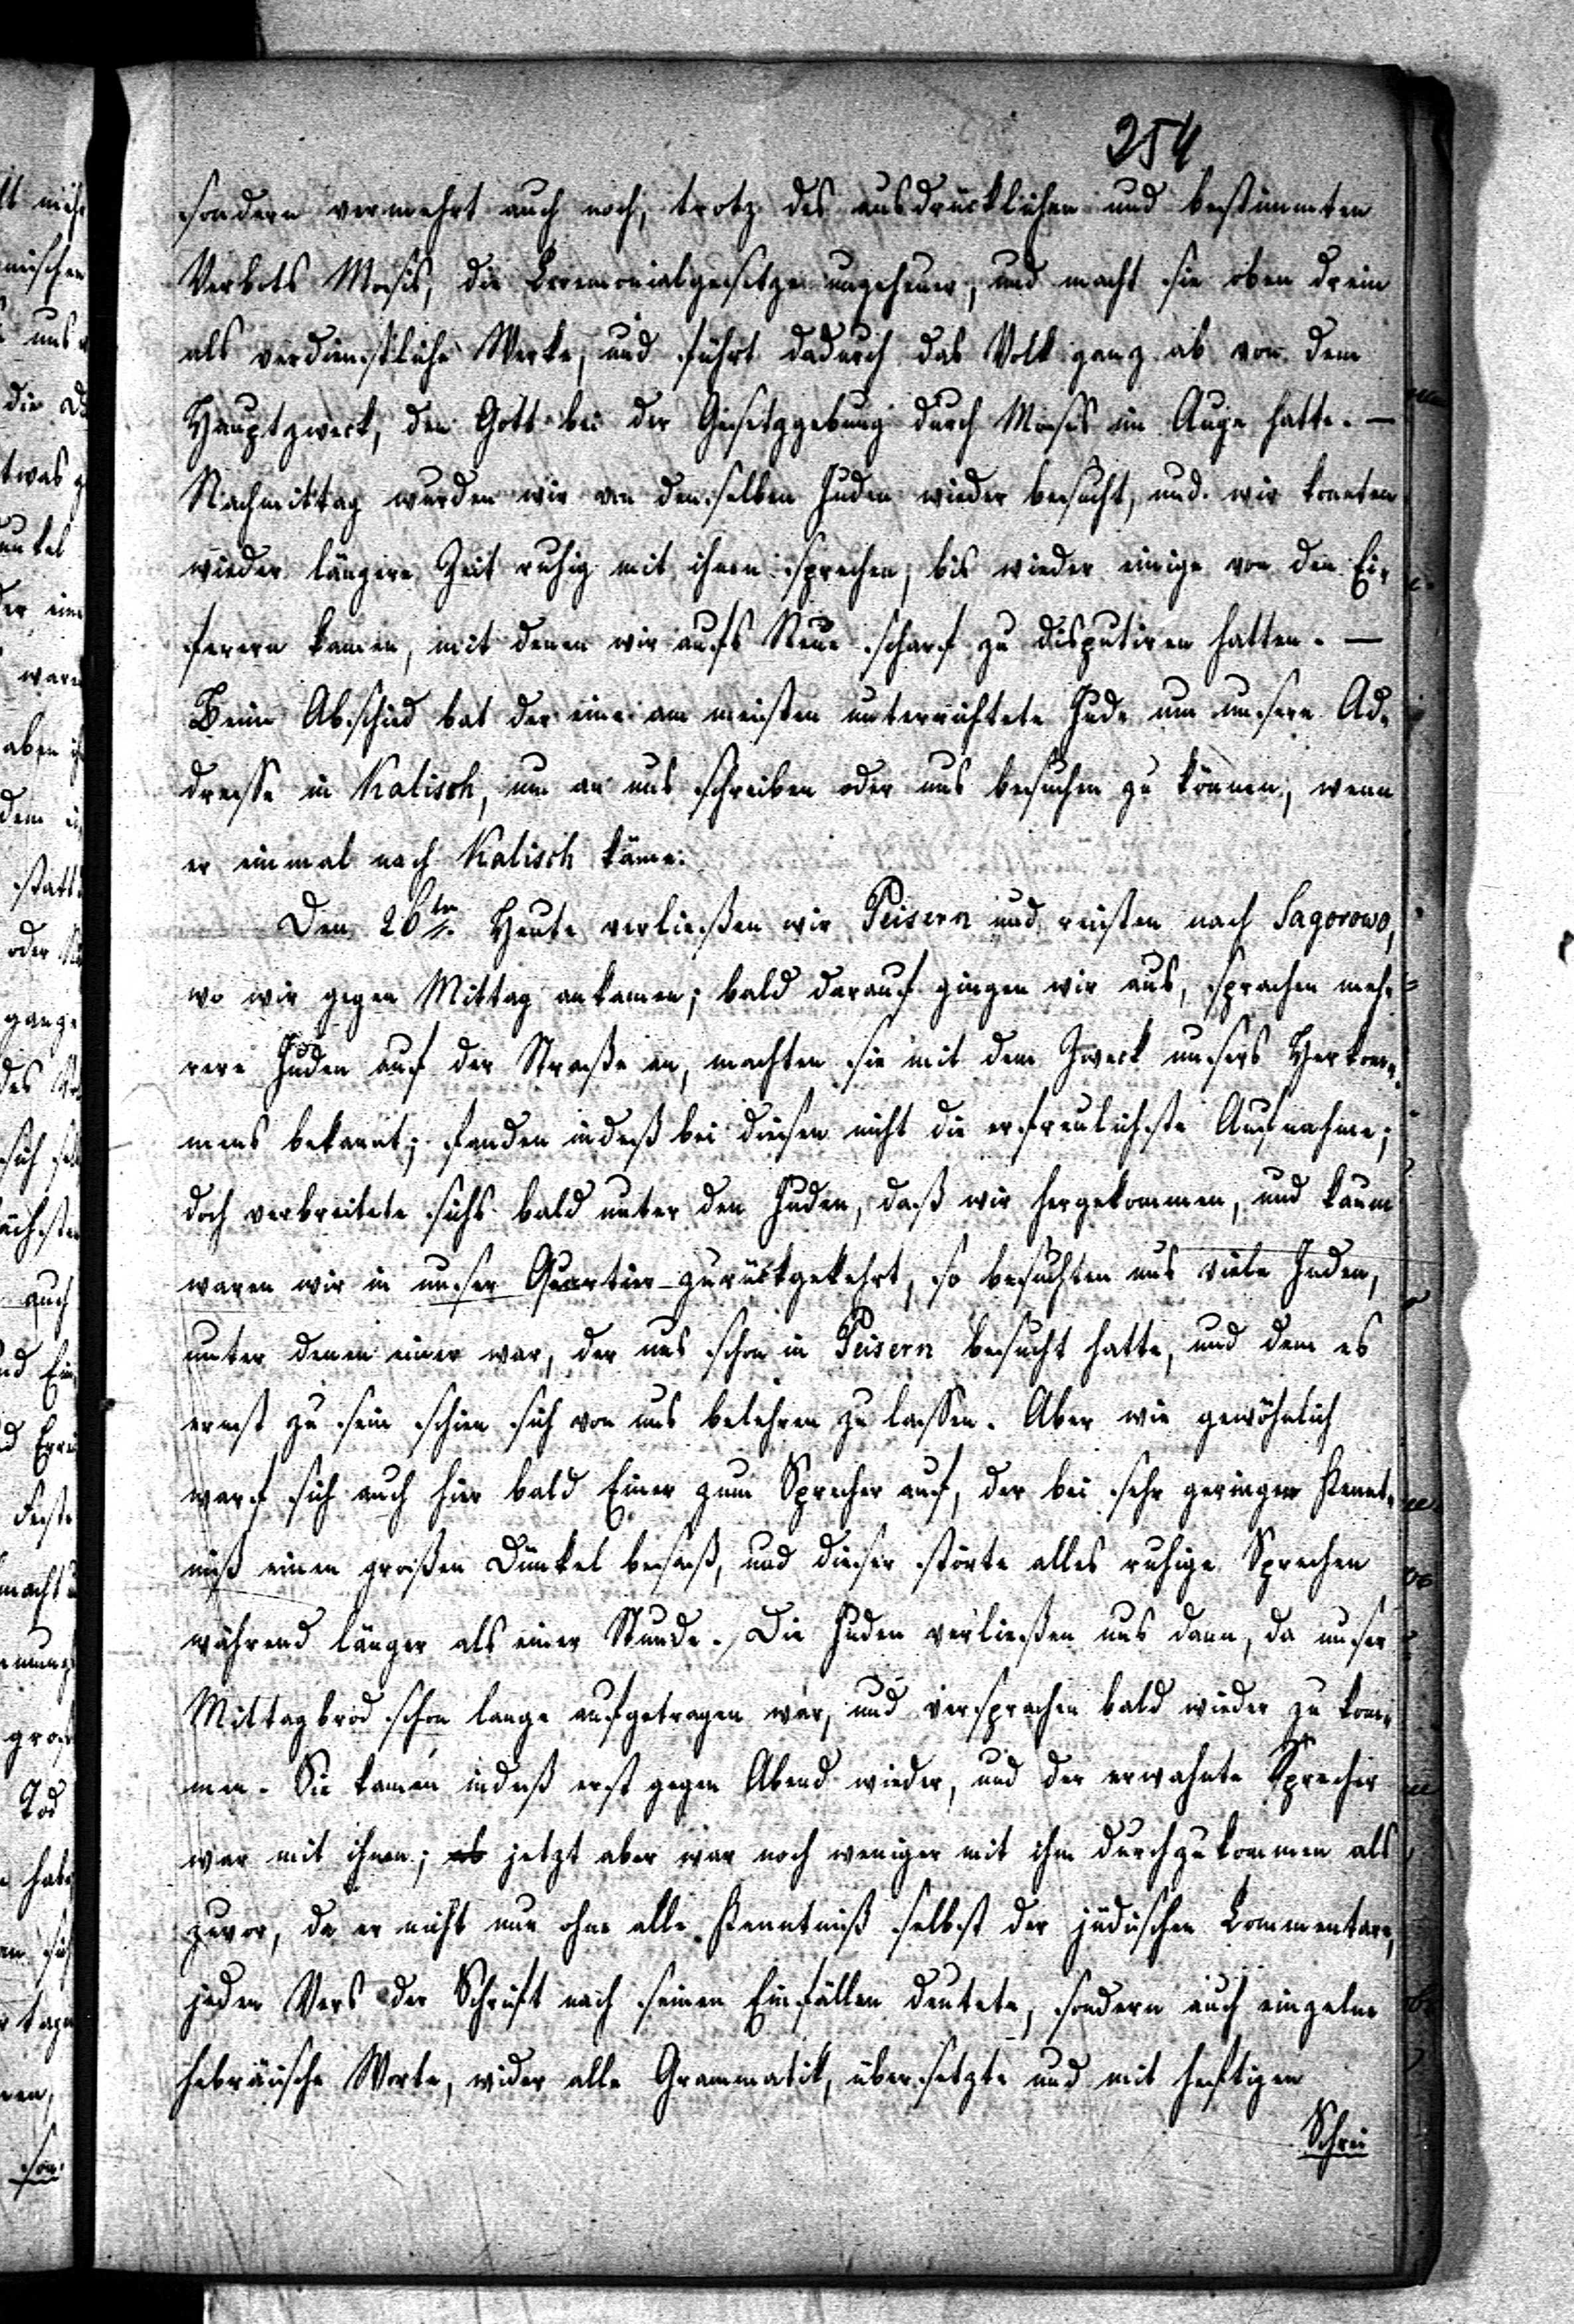 254
sondern vermehrt auch noch, trotz des ausdrücklichen und bestimmten
Verbots Mosis, die Ceremonialgesetze ungeheuer, und macht sie oben drein
als verdienstliche Werke, und führt dadurch das Volk ganz ab von dem
Hauptzweck, den Gott bei der Gesetzgebung durch Moses im Auge hatte. —
Nachmittag wurden wir von denselben Juden wieder besucht, und wir konnten
wieder längere Zeit ruhig mit ihnen sprechen, bis wieder einige von den Ei-
ferern kamen, mit denen wir aufs Neue scharf zu disputiren hatten. —
Beim Abschied bat der eine am meisten unterrichtete Jude um unsere Ad-
dresse in Kalisch, um an uns schreiben oder uns besuchen zu können, wenn
er einmal nach Kalisch käme.
Den 26ten Heute verließen wir Peisern und reisten nach Sagorowo,
wo wir gegen Mittag ankamen; bald darauf gingen wir aus, sprachen meh-
rere Juden auf der Straße an, machten sie mit dem Zweck unsers Herkom-
mens bekannt; fanden indeß bei diesen nicht die erfreulichste Aufnahme;
doch verbreitete sichs bald unter den Juden, daß wir hergekommen, und kaum
waren wir in unser Quartier zurückgekehrt, so besuchten uns viele Juden,
unter denen einer war, der uns schon in Peisern besucht hatte, und dem es
ernst zu sein schien sich von uns belehren zu lassen. Aber wie gewöhnlich
warf sich auch hier bald Einer zum Sprecher auf, der bei sehr geringer Kennt-
niß einen großen Dünkel besaß, und dieser störte alles ruhige Sprechen
während länger als einer Stunde. Die Juden verließen uns dann, da unser
Mittagbrod schon lange aufgetragen war, und versprachen bald wieder zu kom-
men. Sie kamen indeß erst gegen Abend wieder, und der erwähnte Sprecher
war mit ihnen; jetzt aber war noch weniger mit ihm durchzukommen als
zuvor, da er nicht nur ohne alle Kenntniß selbst der jüdischen Commentare,
jeden Vers der Schrift nach seinen Einfällen deutete, sondern auch einzelne
hebräische Worte, wider alle Grammatik, übersetzte und mit heftigen
Schrei